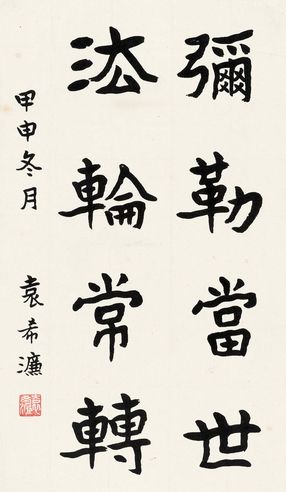 彌勒當世
法輪常轉
甲申冬月 袁希濂